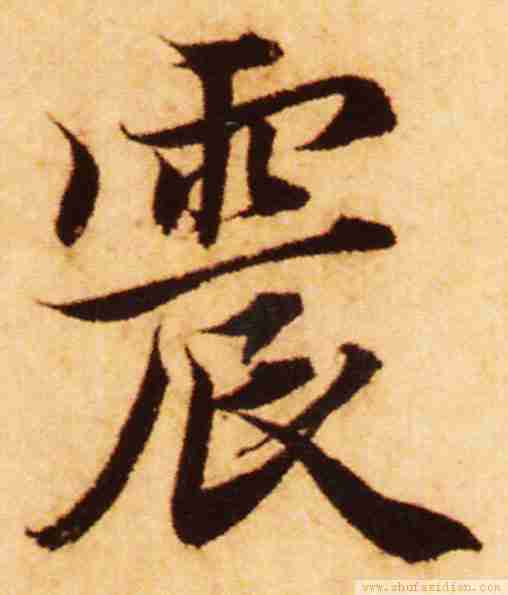 震
www.shufazidian.com